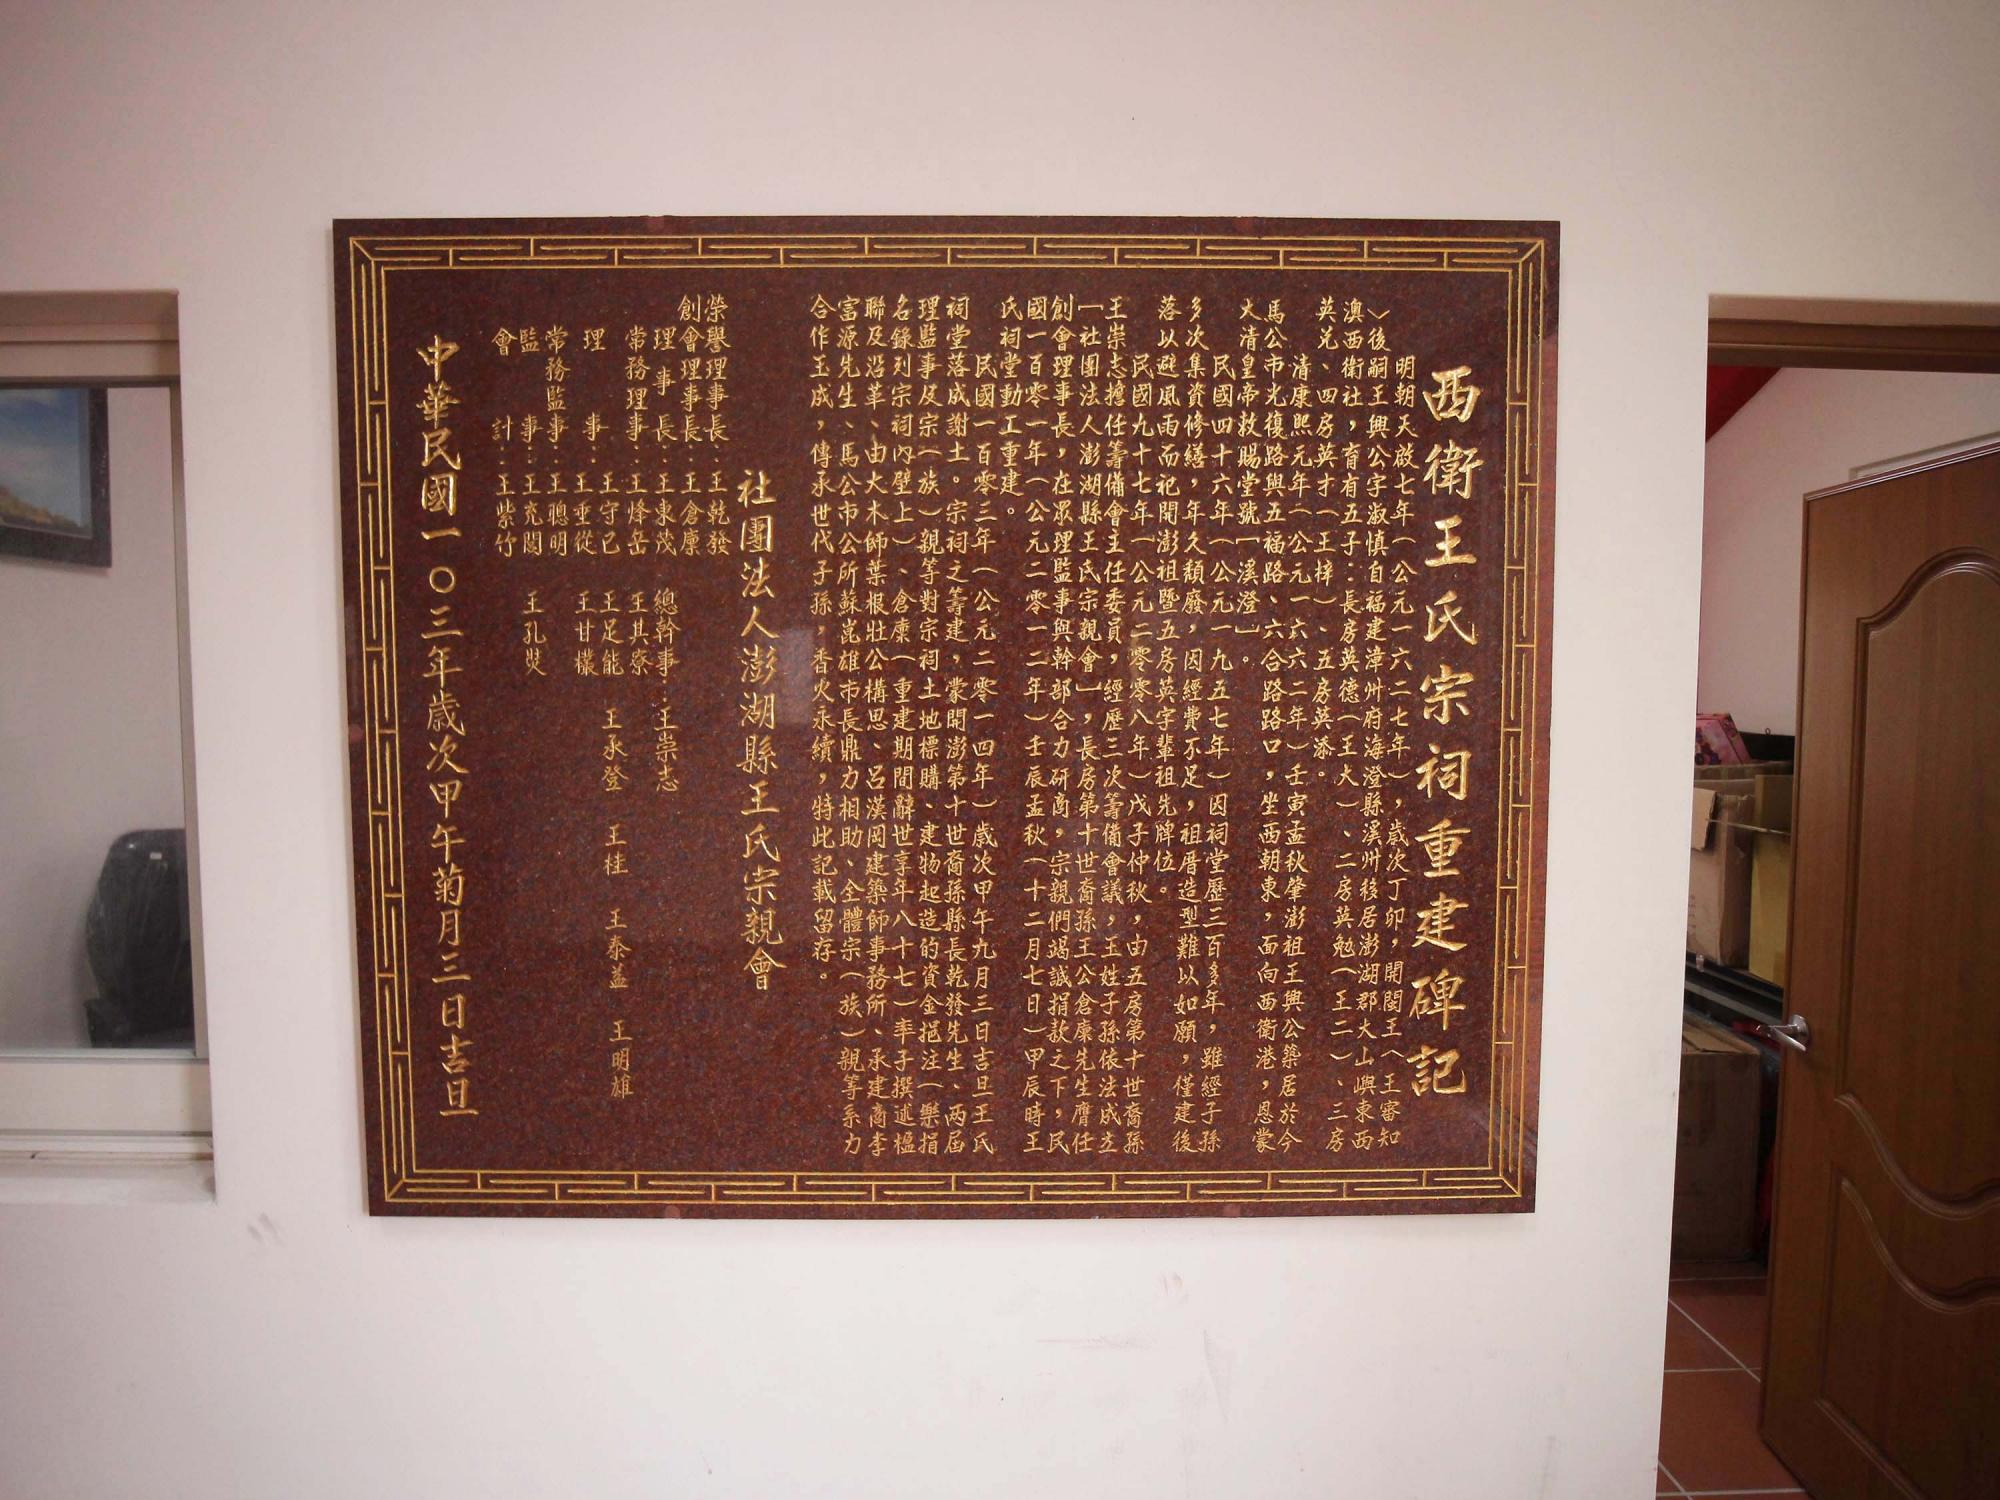 西衛王氏宗祠重建碑記
明朝天啟七年(公元一六二七年)，歲次丁卯，開閩王(王審知
)後嗣王興公字淑慎自福建漳州府海澄縣溪州後居澎湖郡大山嶼東西
澳西衛社，育有五子：長房英德(王大)、二房英勉(王二)、三房
英兑、四房英才(王梓)、五房英添。
清康熙元年(公元一六六二年)壬寅孟秋肇澎祖王興公築居於今
馬公市光復路與五福路、六合路路口，坐西朝東，面向西衛港，恩蒙
大清皇帝敕賜堂號「溪澄」。
民國四十六年(公元一九五七年)因祠堂歷三百多年，雖經子孫
多次集資修繕，年久頹廢，因經費不足，祖厝造型難以如願，僅建後
落以避風雨而祀開澎祖暨五房英字輩祖先牌位。
民國九十七年(公元二零零八年)戊子仲秋，由五房第十世裔孫
王崇志擔任籌備會主任委員，經歷三次籌備會議，王姓子孫依法成立
「社團法人澎湖縣王氏宗親會」，長房第十世裔孫王公倉廉先生膺任
創會理事長，在眾理監事與幹部合力研商，宗親們竭誠捐款之下，民
國一百零一年(公元二零一二年)壬辰孟秋(十二月七日)甲辰時王
氏祠堂動工重建。
民國一百零三年(公元二零一四年)歲次甲午九月三日吉旦王氏
祠堂落成謝土。宗祠之籌建，蒙開澎第十世裔孫縣長乾發先生、两屆
理監事及宗(族)親等對宗祠土地標購、建物起造的資金挹注(樂捐
名錄列宗祠內壁上)、倉廉(重建期間辭世享年八十七)率子撰述楹
聯及沿革、由大木師葉根壯公構思、呂漢岡建築師事務所、承建商李
富源先生、馬公市公所蘇崑雄市長鼎力相助、全體宗(族)親等系力
合作玉成，傳承世代子孫，香火永續，特此記載留存。
社團法人澎湖縣王氏宗親會
榮譽理事長：王乾發
創會理事長：王倉廉
理事長：王東茂 總幹事：王崇志
常務理事：王烽岳 王其寮
理事：王守己 王足能 王承登 王桂 王泰益 王明雄
王重從 王甘欉
常務監事：王聰明
監事：王充閔 王孔獎
會計：王紫竹
中華民國一〇三年歲次甲午菊月三日吉旦